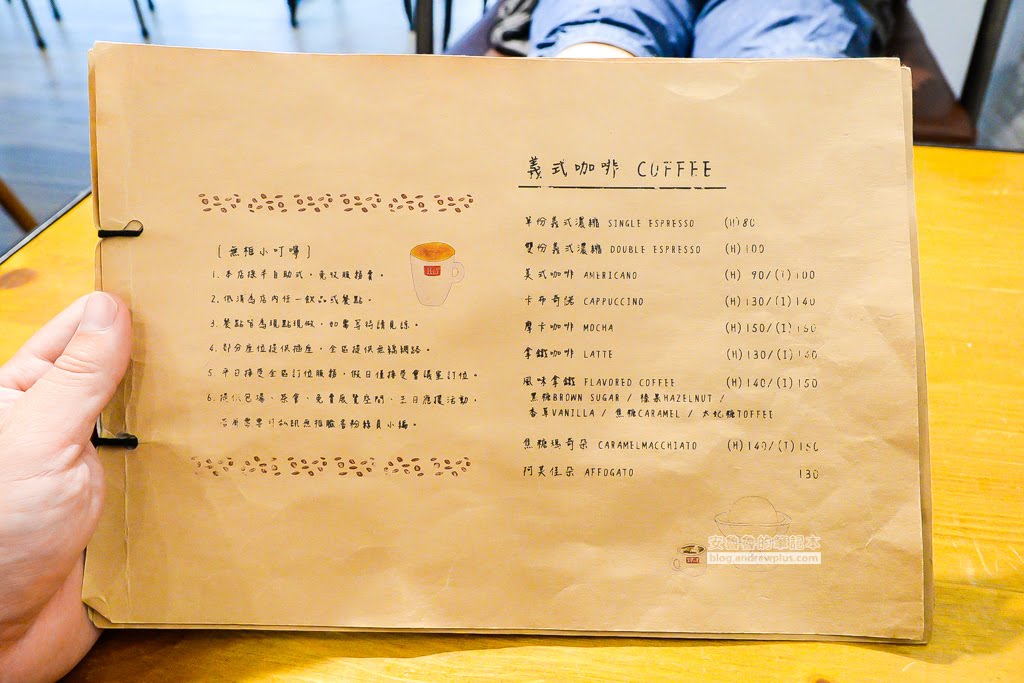 [ 無框小叮嚀 ]
1. 本店採半自助式，免收服務費。
2. 低消為店內任一飲品或餐點。
3. 餐點皆為現點現做，如需等待請見諒。
4. 部分座位提供插座，全區提供無線網路。
5. 平日接受全區訂位服務，假日僅接受會議室訂位。
6. 提供包場、茶會、免費展覽空間、生日應援活動，
粉絲頁小編。
義式咖啡 COFFEE
單份義式濃縮 SINGLE ESPRESSO (H)80
雙份義式濃縮 DOUBLE ESPRESSO (H)100
美式咖啡 AMERICANO (H) 90/(I)100
卡布奇諾 CAPPUCCINO (H)130/(I)140
摩卡咖啡 MOCHA (H)150/(I)160
拿鐵咖啡 LATTE (H)130/(I)140
風味拿鐵 FLAVORED COFFEE (H)140/(I)150
黑糖BROWN SUGAR / 榛果HAZELNUT /
香草VANILLA / 焦糖CARAMEL / 太妃糖TOFFEE
焦糖瑪奇朵 CARAMELMACCHIATO (H)140/(I)150
阿芙佳朵 AFFOGATO 130
安魯魯的筆記本
blog.andrewplus.com